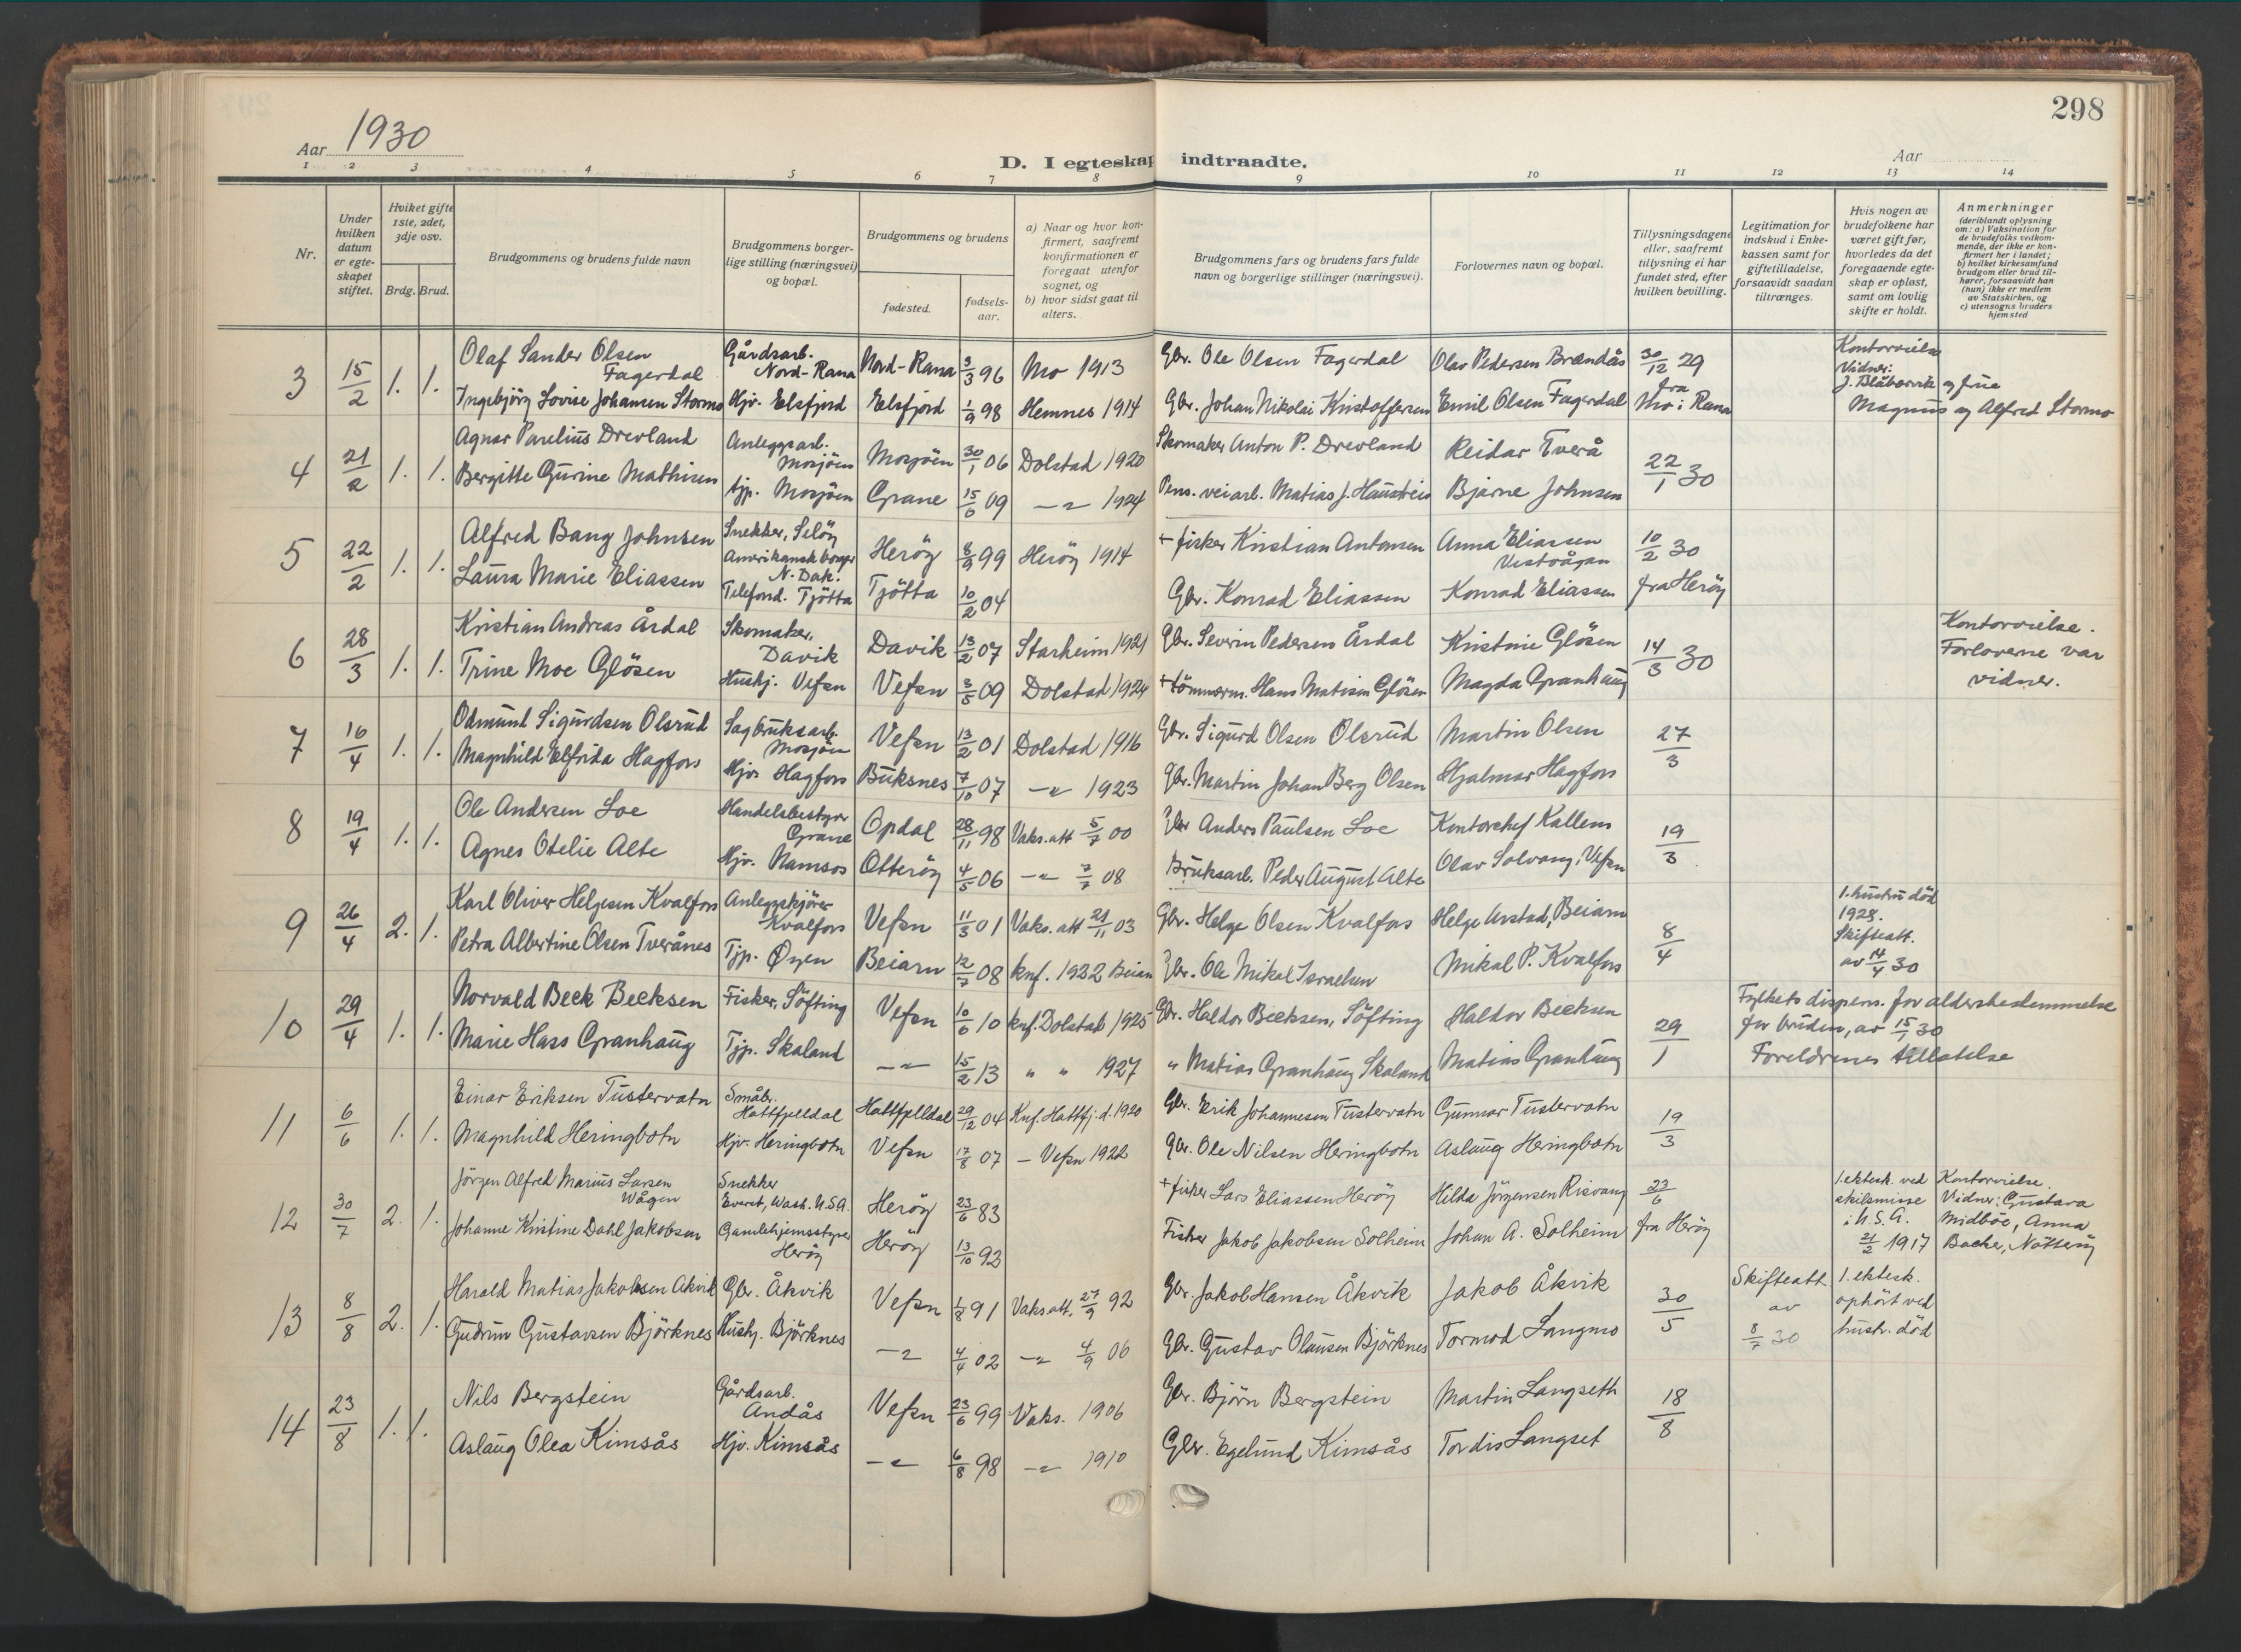 298
Aar 1930
D. I egteskap indtraadte.
Aar
1 2 3 4 5 6 7 8 9 10 11 12 13 14
Nr.
Under hvilken datum er egteskapet stiftet.
Hvilket gifte 1ste, 2det, 3dje osv.
Brdg. Brud.
Brudgommens og brudens fulde navn
Brudgommens borgerlige stilling (næringsvei) og bopæl.
Brudgommens og brudens
fødested.
fødselsaar.
a) Naar og hvor konfirmert, saafremt konfirmationen er foregaat utenfor sognet, og
b) hvor sidst gaat til alters.
Brudgommens fars og brudens fars fulde navn og borgerlige stillinger (næringsvei).
Forlovernes navn og bopæl.
Tillysningsdagene eller, saafremt tillysning ei har fundet sted, efter hvilken bevilling.
Legitimation for indskud i Enkekassen samt for giftetilladelse, forsaavidt saadan tiltrænges.
Hvis nogen av brudefolkene har været gift før, hvorledes da det foregaaende egteskap er opløst, samt om lovlig skifte er holdt.
Anmerkninger
(deriblandt oplysning om: a) Vaksination for de brudefolks vedkommende, der ikke er konfirmert her i landet; b) hvilket kirkesamfund brudgom eller brud tilhører, forsaavidt han (hun) ikke er medlem av Statskirken, og c) utensogns bruders hjemsted
3 15/2 1. 1. Olaf Sander Olsen Fagerdal Gårdsarb. Nord-Rana Nord-Rana 3/3 96 Mo 1913 Gbr. Ole Olsen Fagerdal Olav Pedersen Brændås 30/12 29 Kontorvielse Vidner: J. Blåbærvik og frue
Ingebjörg Lovise Johansen Stormo Hjv. Elsfjord Elsfjord 1/9 98 Hemnes 1914 Gbr. Johan Nikolai Kristoffersen Emil Olsen Fagerdal fra Mo i Rana Magnus og Alfred Stormo
4 21/2 1. 1. Agnar Parelius Drevland Anleggsarb. Mosjöen Mosjöen 30/1 06 Dolstad 1920 Skomaker Anton P. Drevland Reidar Tverå 22/1 30
Bergitte Gurine Mathisen tjp. Mosjöen Grane 15/6 09 -"- 1924 Pens. veiarb. Matias J. Haustreis Bjarne Johnsen
5 22/2 1. 1. Alfred Bang Johnsen Snekker, Selöy Amerikansk borger N. Dak. Heröy 8/9 99 Heröy 1914 + fisker Kristian Antonsen Anna Eliassen Vestvågan 10/2 30
Laura Marie Eliassen Telefond. Tjötta Tjötta 10/2 04 Gbr. Konrad Eliassen Konrad Eliassen fra Heröy
6 28/3 1. 1. Kristian Andreas Årdal Skomaker, Davik Davik 13/2 07 Starheim 1921 Gbr. Severin Pedersen Årdal Kristine Glösen 14/3 30 Kontorvielse. Forloverne var vidner.
Trine Moe Glösen Hushj. Vefsn Vefsn 3/5 09 Dolstad 1924 + tömmerm. Hans Matisen Glösen Magda Granhaug
7 16/4 1. 1. Odmund Sigurdsen Olsrud Sagbruksarb. Mosjöen Vefsn 13/2 01 Dolstad 1916 Gbr. Sigurd Olsen Olsrud Martin Olsen 27/3
Magnhild Elfrida Hagfors Hjv. Hagfors Buksnes 7/10 07 -"- 1923 Gbr. Martin Johan Berg Olsen Hjalmar Hagfors
8 19/4 1. 1. Ole Andersen Loe Handelsbestyrer Grane Opdal 28/11 98 Vaks. att 5/7 00 Gbr Anders Paulsen Loe Kontorchef Kallem 19/3
Agnes Otelie Alte Hjv. Namsos Otteröy 4/5 06 -"- 7/7 08 Bruksarb. Peder August Alte Olav Solvang, Vefsn
9 26/4 2. 1. Karl Oliver Helgesen Kvalfors Anleggskjörer Kvalfors Vefsn 11/3 01 Vaks. att 21/11 03 Gbr. Helge Olsen Kvalfors Helge Arstad, Beiarn 8/4 1. hustru död 1928. Skifteatt. av 14/4 30
Petra Albertine Olsen Tverånes Tjp. Øyen Beiarn 12/7 08 knf. 1922 Beiarn Gbr. Ole Mikal Israelsen Mikal P. Kvalfors
10 29/4 1. 1. Norvald Beck Becksen Fisker, Söfting Vefsn 10/6 10 knf. Dolstad 1925 Gbr. Haldor Becksen, Söfting Haldor Becksen 29/1 Fylkets dispens. for aldersbestemmelse for bruden, av 15/1 30 Foreldrenes tillatelse
Marie Hass Granhaug Tjp. Skaland -"- 15/2 13 " " 1927 " Matias Granhaug Skaland Matias Granhaug
11 6/6 1. 1. Einar Eriksen Tustervatn Småbr. Hattfjelldal Hattfjelldal 29/12 04 Knf. Hattfj.d. 1920 Gbr. Erik Johannesen Tustervatn Gunnar Tustervatn 19/3
Magnhild Heringbotn Hjv. Heringbotn Vefsn 17/8 07 - Vefsn 1922 Gbr. Ole Nilsen Heringbotn Aslaug Heringbotn
12 30/7 2. 1. Jörgen Alfred Marius Larsen Wågen Snekker Everet, Wash. U.S.A. Heröy 23/6 83 + fisker Lars Eliassen Heröy Hilda Jörgensen Risvang 23/6 1. ektesk. ved skilsmisse i U.S.A. 21/2 1917 Kontorvielse. Vidner: Gustava Midböe, Anna Backer, Nötteröy
Johanne Kristine Dahl Jakobsen Gamlehjemsstyrer Heröy Heröy 13/10 92 Fisker Jakob Jakobsen Solheim Johan A. Solheim fra Heröy
13 8/8 2. 1. Harald Matias Jakobsen Åkvik Gbr. Åkvik Vefsn 1/8 91 Vaks att. 27/9 92 Gbr. Jakob Hansen Åkvik Jakob Åkvik 30/5 Skifteatt. av 8/7 30 1. ektesk. ophört ved hustr. död
Gudrun Gustavsen Björknes Hushj. Björknes -"- 4/4 02 -"- 4/9 06 Gbr. Gustav Olausen Björknes Tormod Langmo
14 23/8 1. 1. Nils Bergstein Gårdsarb. Andås Vefsn 23/6 99 Vaks. 1906 Gbr. Björn Bergstein Martin Langseth 18/8
Aslaug Olea Kimsås Hjv. Kimsås -"- 6/8 98 -"- 1910 Gbr. Egelund Kimsås Tordis Langset